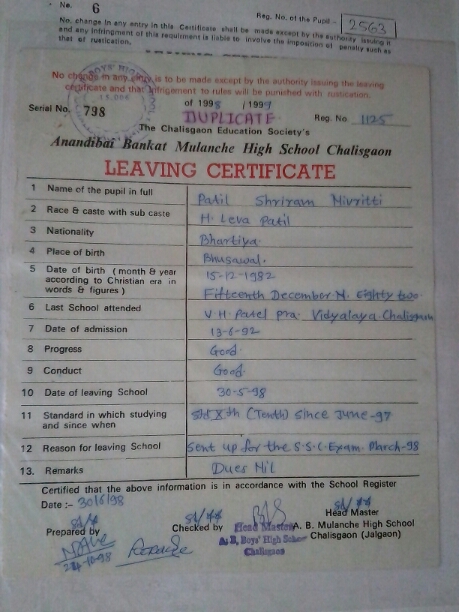 No. 6
Reg. No. of the Pupil - 2563
No. change in any entry in this Certificate shall be made except by the authority issuing it
and any infringment of this requirement is liable to involve the imposition of penalty such as
that of rustication.
No change in any entry is to be made except by the authority issuing the leaving
certificate and that infrigement to rules will be punished with rustication.
of 1998 / 1999
Serial No. 798
DUPLICATE
Reg. No 1125
The Chalisgaon Education Society's
Anandibai Bankat Mulanche High School Chalisgaon
LEAVING CERTIFICATE
1 Name of the pupil in full Patil Shriram Nivritti
2 Race & caste with sub caste H. Leva Patil
3 Nationality Bhartiya
4 Place of birth Bhusawal.
5 Date of birth (month & year 15-12-1982
according to Christian era in
words & figures) Fifteenth December N. Eighty two.
6 Last School attended V H. Patel pra. Vidyalaya Chalisgaon
7 Date of admission 13-6-92
8 Progress Good.
9 Conduct Good.
10 Date of leaving School 30-5-98
11 Standard in which studying Std Xth (Tenth) since June-97
and since when
12 Reason for leaving School Sent up for the S.S.C. Exam. March-98
13. Remarks Dues Nil
Certified that the above information is in accordance with the School Register
Date :- 30/6/98
Prepared by
Checked by
Head Master
Head Master
A. B. Mulanche High School
A. B. Boys' High School
Chalisgaon (Jalgaon)
Chalisgaon